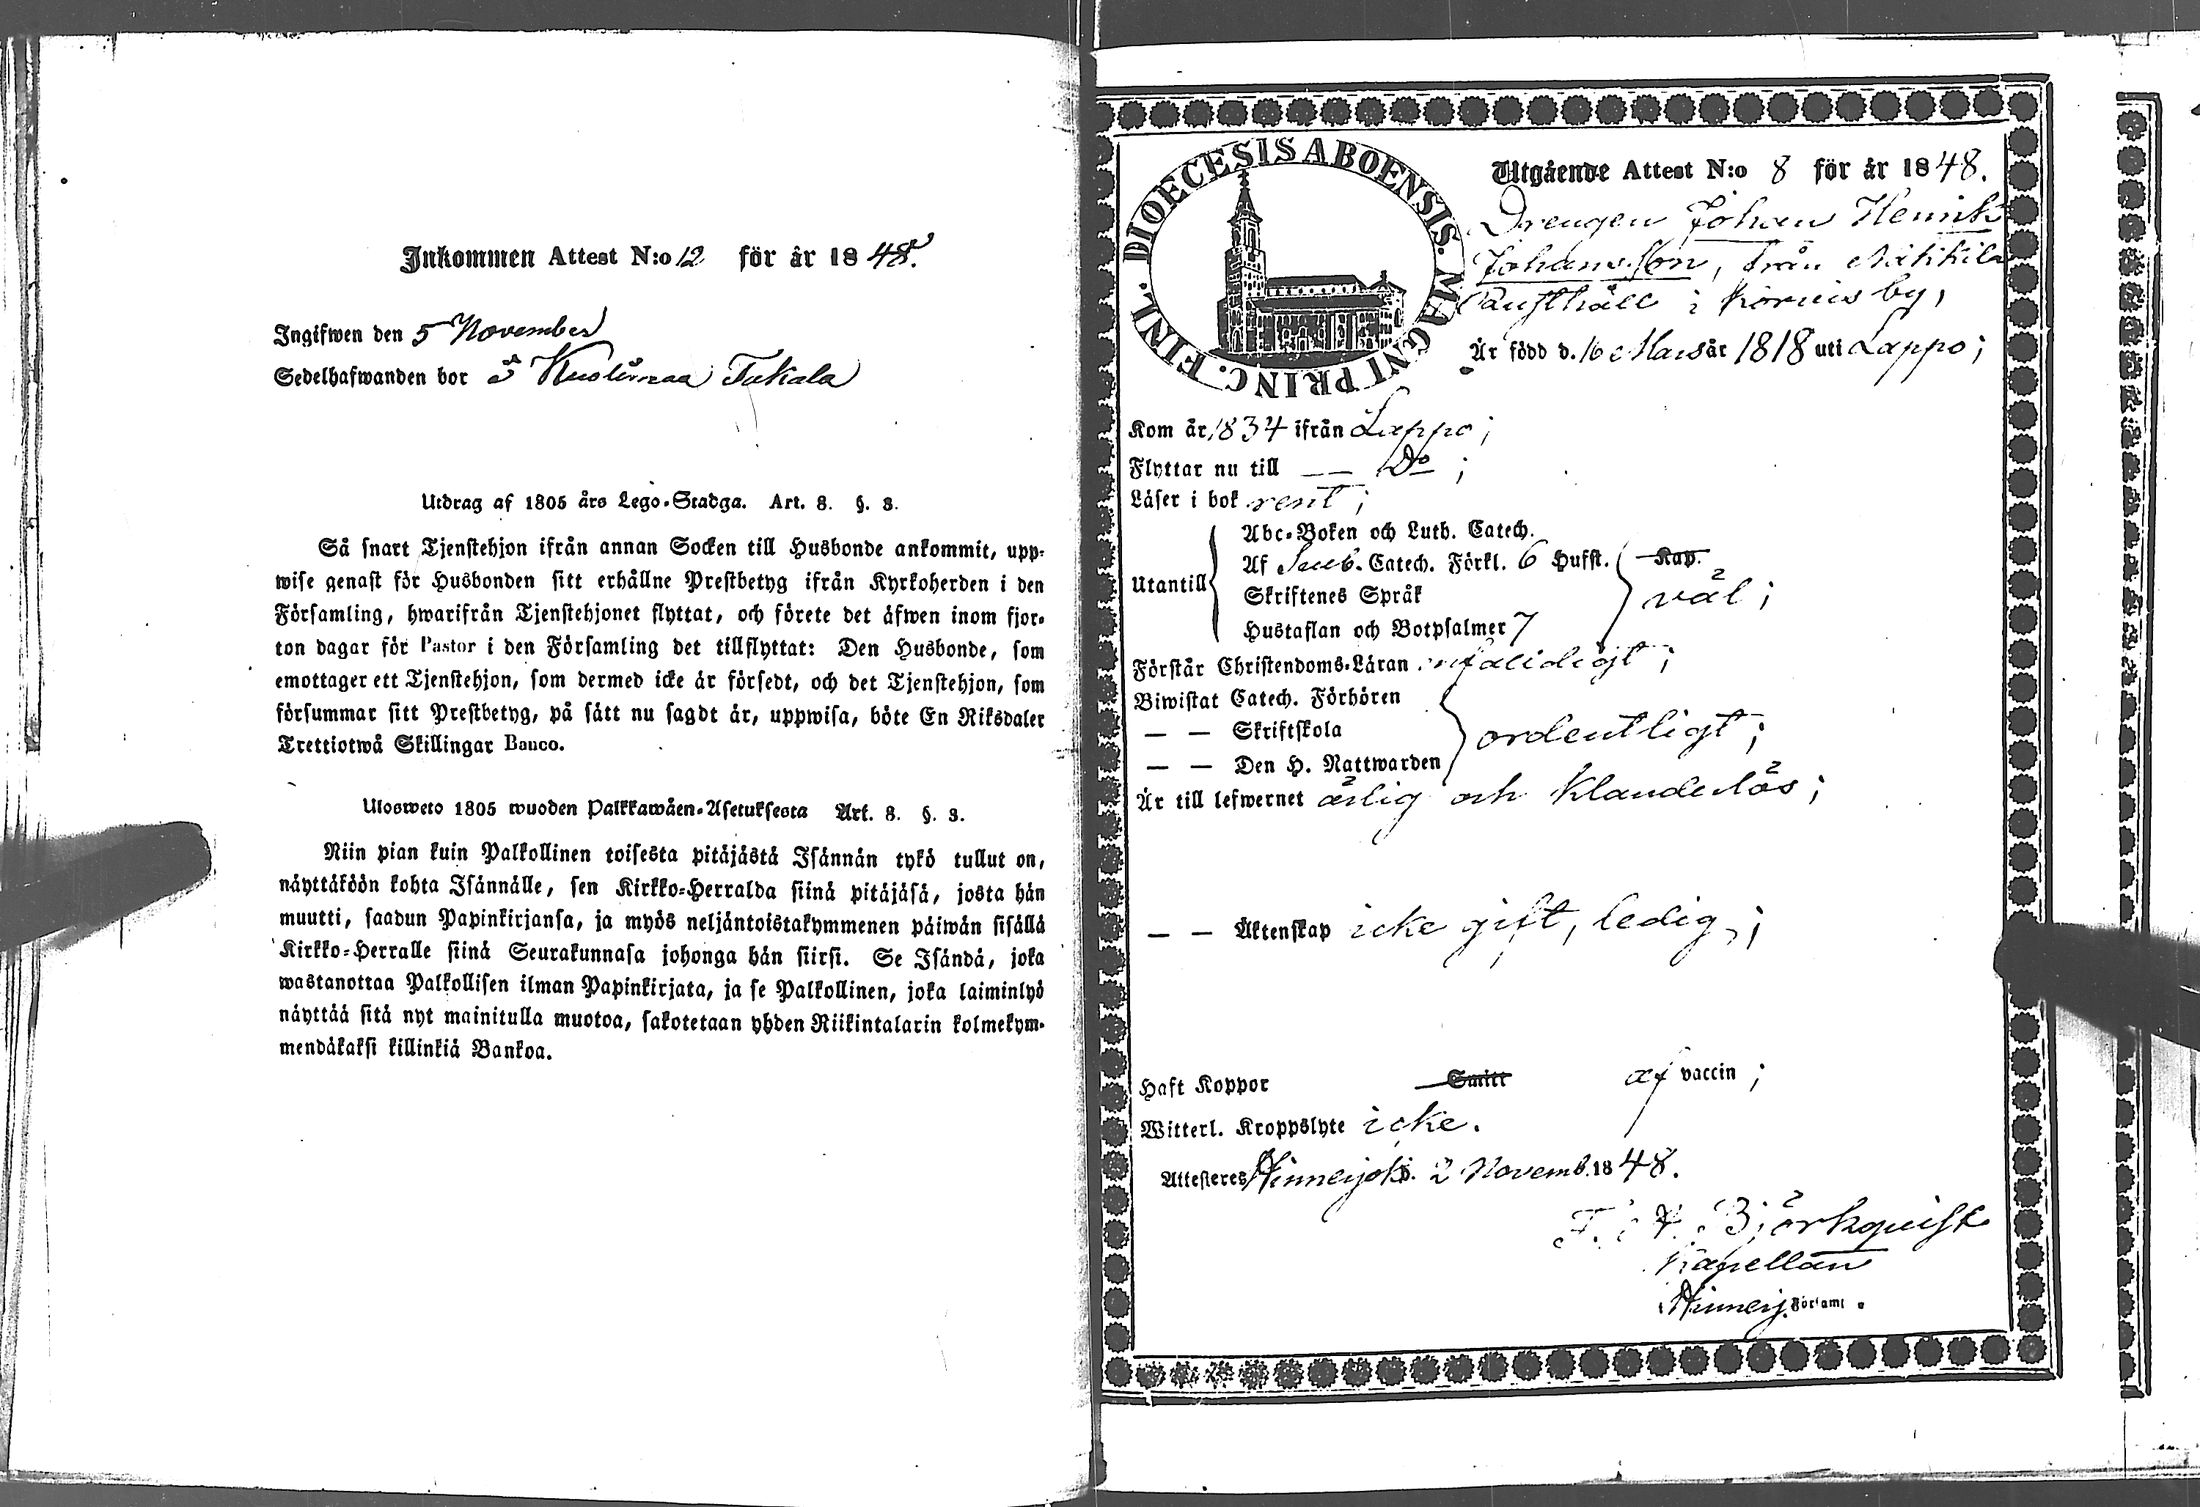 Inkommen Attest N:o 12 för år 1848.
Ingifwen den 5 November
Sedelhafwanden bor å Kuolimaa Tukala
Utdrag af 1805 års Lego-Stadga. Art. 8. §. 3.
Så snart Tjenstehjon ifrån annan Socken till Husbonde ankommit, upp-
wise genast för Husbonden sitt erhållne Prestbetyg ifrån Kyrkoherden i den
Församling, hwarifrån Tjenstehjonet flyttat, och förete det äfwen inom fjor-
ton dagar för Pastor i den Församling det tillflyttat: Den Husbonde, som
emottager ett Tjenstehjon, som dermed icke är försedt, och det Tjenstehjon, som
försummar sitt Prestbetyg, på sätt nu sagdt är, uppwisa, böte En Riksdaler
Trettiotwå Skillingar Banco.
Ulosweto 1805 wuoden Palkkawäen-Asetuksesta Art. 8. §. 3.
Niin pian kuin Palkollinen toisesta pitäjästä Isännän tykö tullut on,
näyttäköön kohta Isännälle, sen Kirkko-Herralda siinä pitäjäsä, josta hän
muutti, saadun Papinkirjansa, ja myös neljäntoistakymmenen päiwän sisällä
Kirkko-Herralle siinä Seurakunnasa johonga hän siirsi. Se Isändä, joka
wastanottaa Palkollisen ilman Papinkirjata, ja se Palkollinen, joka laiminlyö
näyttää sitä nyt mainitulla muotoa, sakotetaan yhden Riikintalarin kolmekym-
mendäkaksi killinkiä Bankoa.
DIOECESIS ABOENSIS. MAGNI PRINC. FINL.
Utgående Attest N:o 8 för år 1848.
Drengen Johan Henrik
Johansson, från Näkkilä
Rusthåll i Korvis by,
Är född d. 16 Mars år 1818 uti Lappo;
Kom år 1834 ifrån Lappo;
Flyttar nu till — Do;
Läser i bok rent;
Utantill
Abc-Boken och Luth. Catech.
Af Sveb. Catech. Förkl. 6 Hufst. Kap.
Skriftenes Språk väl;
Hustaflan och Botpsalmer 7
Förstår Christendoms-Läran enfaldigt;
Biwistat Catech. Förhören
— — Skriftskola ordentligt;
— — Den H. Nattwarden
Är till lefwernet ärlig och klanderlös;
— — Äktenskap icke gift, ledig;
Haft Koppor Smitt af vaccin;
Witterl. Kroppslyte icke.
Attesteres Hinnerjoki d. 2 Novemb. 1848.
Björkqvist
Kapellan
Hinnerj. Förs amt.